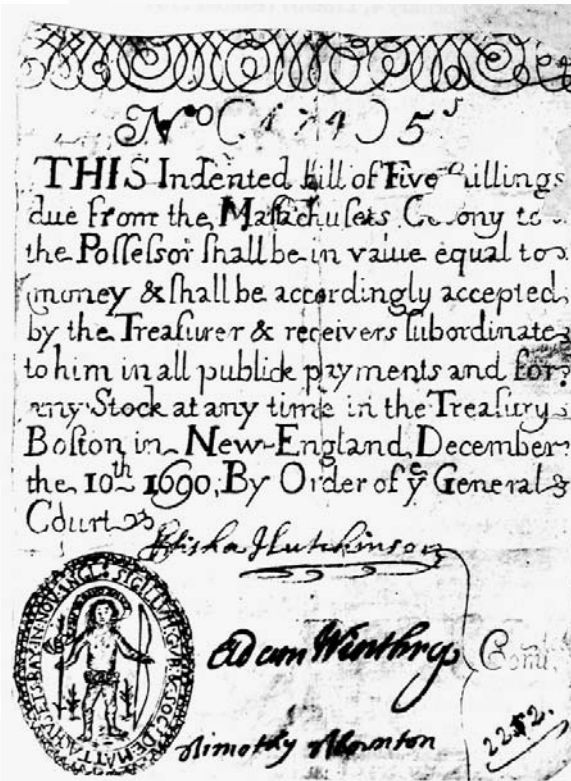 No (474) 5s
THIS Indented Bill of Five Shillings
due from the Massachusets Colony to
the Possessor shall be in value equal to
money & shall be accordingly accepted
by the Treasurer & receivers subordinate
to him in all publick payments and for
any Stock at any time in the Treasury
Boston in New-England, December
the 10th 1690, By Order of ye General
Court
Elisha Hutchinson
Adam Winthrop
Timothy Thornton
Comtee
2252.
SIGILLUM GUB & SOC DE MATTACHUSETS BAY IN NOV ANGL